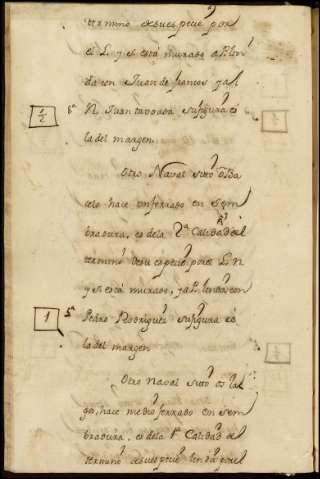 termino desu especie por
el L. y si está murado
da con Juan de santos y al
1/2
N. Juan taboada su figura es
la del margen.
Otro Naval sito
celo hace un ferrado en sem
bradura, es de la 2ª Calidad del
termino desu especie por el L. N
y si está murado, y al con
1
5
Pedro Rodriguez su figura es
la del margen
Otro naval sito
go, hace medio ferrado en sem
bradura es de la 1ª Calidad del
termino desu especie por el